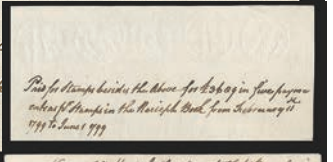 Paid for Stamps besides the Above for £36.09 in five paymen
ents as pr Stamps in the Receipt Book from February 11th
1799 to June 1 1799